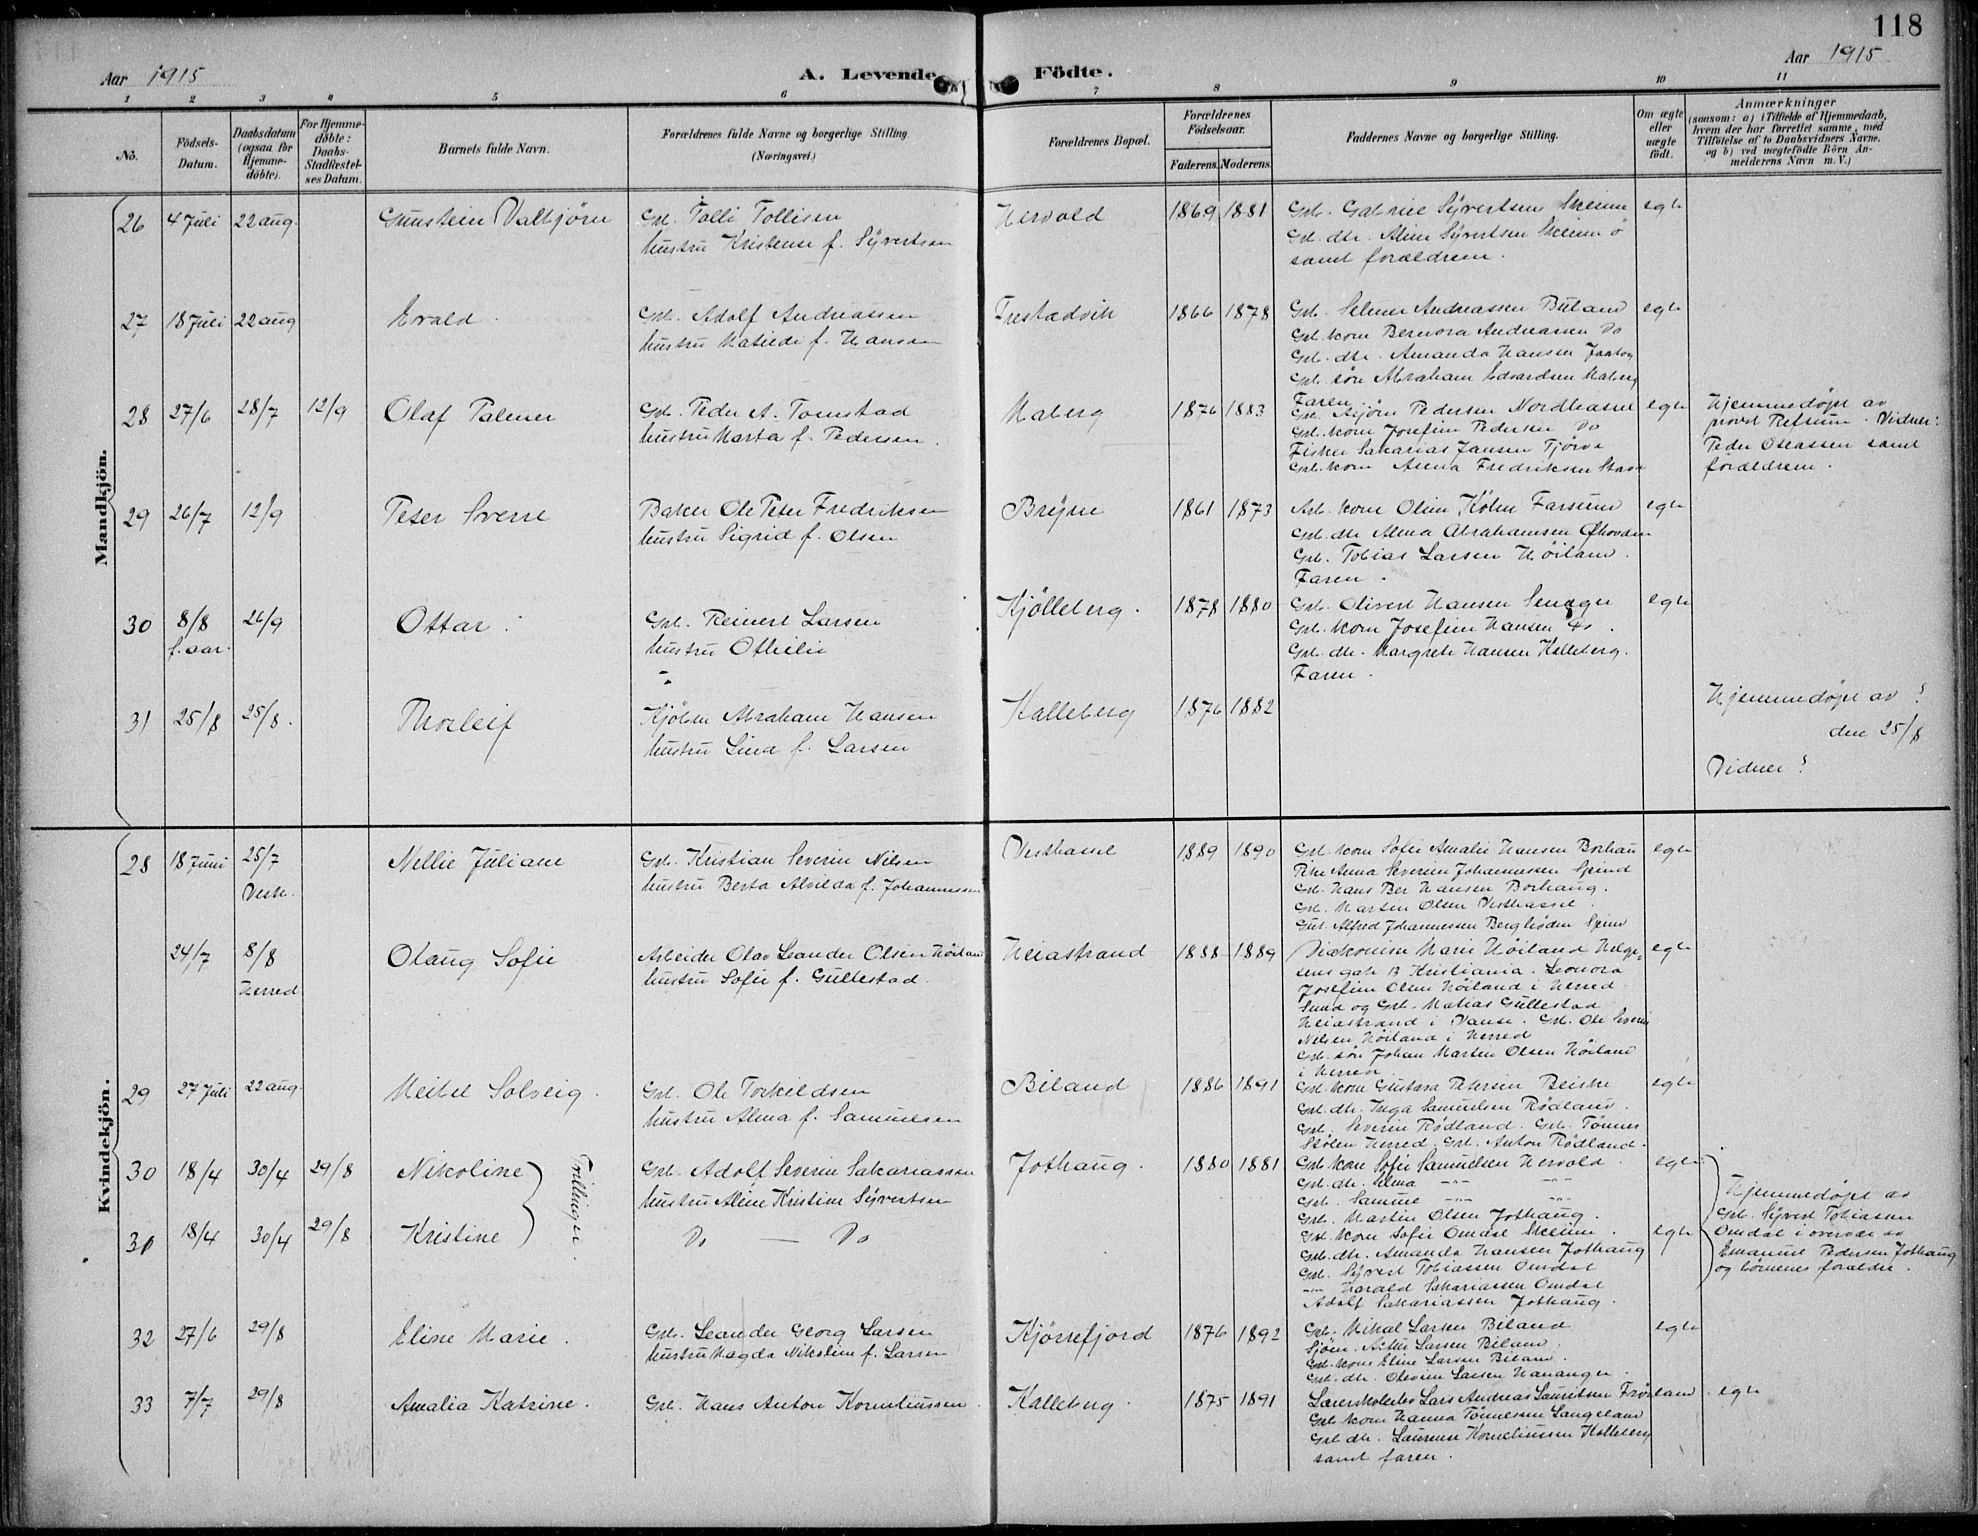 118
Aar 1915
A. Levende Födte.
Aar 1915
1 2 3 4 5 6 7 8 9 10 11
No.
Födsels-Datum.
Daabsdatum (ogsaa for Hjemme-döbte).
For Hjemme-döbte: Daabs-Stadfæstel-ses Datum.
Barnets fulde Navn.
Forældrenes fulde Navne og borgerlige Stilling. (Næringsvei.)
Forældrenes Bopæl.
Forældrenes Födselsaar.
Faderens. Moderens.
Faddernes Navne og borgerlige Stilling.
Om ægte eller uægte födt.
Anmærkninger
(saasom: a) i Tilfælde af Hjemmedaab, hvem der har forrettet samme, med Tilföielse af to Daabsvidners Navne, og b) ved uægtefödte Börn An-meiderens Navn m. V.)
Mandkjön.
26 4 Juli 22 aug. Gunstein Valbjörn
Grb. Tolli Tollisen
hustru Kristense f. Syvertsen
Hervold 1869 1881
Grb. Gabriel Syvertsen Skeime
Grb. dtr. Aline Syvertsen Skeime
samt forældrene.
egte
27 18 Juli 22 aug Evald
Grb. Adolf Andreassen
hustru Matilde f. Hansen
Frestadvik 1866 1878
Grb. Selmer Andreassen Buland
Grb. kom Bernora Andreassen Do
Grb. dtr. Amanda Hansen
Grb. søn Abraham Edvardsen Maberg
Faren
egte
28 27/6 28/7 12/9 Olaf Palmer
Grb. Peder A. Tomstad
hustru Marta f. Pedersen.
Maberg 1876 1883
Grb. Pedersen Nordhassel
Grb. kom Josefine Pedersen Do
Fisker Sakarias Jansen Tjörve
Grb. kom Anna Fredriksen Stave
egte
Hjemmedøpt av
provst Refsum. Vidner:
Peder Oseassen samt
forældrene.
29 26/7 12/9 Peter Sverre
Baker Ole Peter Fredriksen
hustru Sigrid f. Olsen
Bryne 1861 1873
Arb. kom Oline Köhn Farsund
Grb. dtr Alma Abrahamsen
Grb. Tobias Larsen Höiland.
Faren.
egte
30 8/8 f. aar. 26/9 Ottar.
Grb. Reinert Larsen
hustru Othilie
Kjölleberg. 1878 1880
Grb. Olivert Hansen
Grb. kom Josefine Hansen do.
Grb. dtr. Margrete Hansen Kalleberg.
Faren.
egte
31 25/8 25/8. Thorleif
Kjöbm Abraham Hansen
hustru Lina f. Larsen
Kalleberg 1876 1882
Hjemmedøpt av ?
den 25/8
Vidner ?
Kvindekjön.
28 18 Juni 25/7 Vesth. Nellie Juliane
Grb. Kristian Severin Nilsen
hustru Berta Alvilda f. Johannessen
Vesthassel 1889 1890
Grb. kom Sofie Amalie Hansen Borhaug
Pike Anna Severine Johannessen Spind
Grb. Hans Ber Hansen Borhaug.
Grb. Marten Olsen Vesthassel.
Gut Alfred Johannessen Spind
egte
24/7 8/8 Herred Olaug Sofie
Arbeider Olav Leander Olsen Höiland
hustru Sofie f. Gullestad.
Heiastrand 1888 1889
Diakonisse Marie Höiland Helge-
sens gate 13 Kristiania. Leonora
Josefine Olsen Höiland i Herred
Sund og Grb. Matias Gullestad
Heiastrand i Vanse. Grb. Ole Severin
Nilsen Höiland i Herred
Grb. søn Johan Martin Olsen Höiland
i Herred
egte
29 27 Juli 22 aug. Meibel Solveig.
Grb. Ole Torkildsen
hustru Alma f. Samuelsen
Biland 1886 1891
Grb. kom Gustava Petersen Beiske
Grb. dtr. Inga Samuelsen Rødland.
Grb. Severin Rødland. Grb. Tönnes
Stölen Herred. Grb. Anton Rødland.
egte
30 18/4 30/4 29/8 Nikoline
Trillinger.
Grb. Adolf Severin Sakariassen
hustru Aline Kristine Syvertsen
Jothaug. 1880 1881
Grb. kom Sofie Samuelsen Hervold.
Grb. dtr. Selma -"- -"-
Grb. Samuel -"- -"-
Grb. Martin Olsen Jothaug.
egte
Hjemmedøpt av
Grb. Syvert Tobiassen
Omdal i overvær av
Emanuel Pedersen Jothaug
og börnenes forældre.
31 18/4 30/4 29/8 Kristine
Do — Do
Grb. kom Sofie Omdal Skeime.
Grb. dtr. Amanda Hansen Jothaug
Grb. Syvert Tobiassen Omdal
-"- Harald Sakariassen Omdal
Adolf Sakariassen Jothaug.
egte
32 27/6 29/8 Eline Marie.
Grb. Leander Georg Larsen
hustru Magda Nikoline f. Larsen
Kjörrefjord 1876 1892
Grb. Mikal Larsen Biland
Sjöm. Larsen Biland.
Grb. kom Eline Larsen Biland.
Grb. dtr. Olevine Larsen Hananger.
egte
33 7/7 29/8 Amalia Katrine.
Grb. Hans Anton Korneliussen.
Kalleberg. 1875 1891
Lærerskoleelev Lars Andreas Lauritsen Fröiland
Grb. kom Hanna Tönnessen Langeland
Grb dtr. Laurense Korneliussen Kalleberg
samt faren.
egte